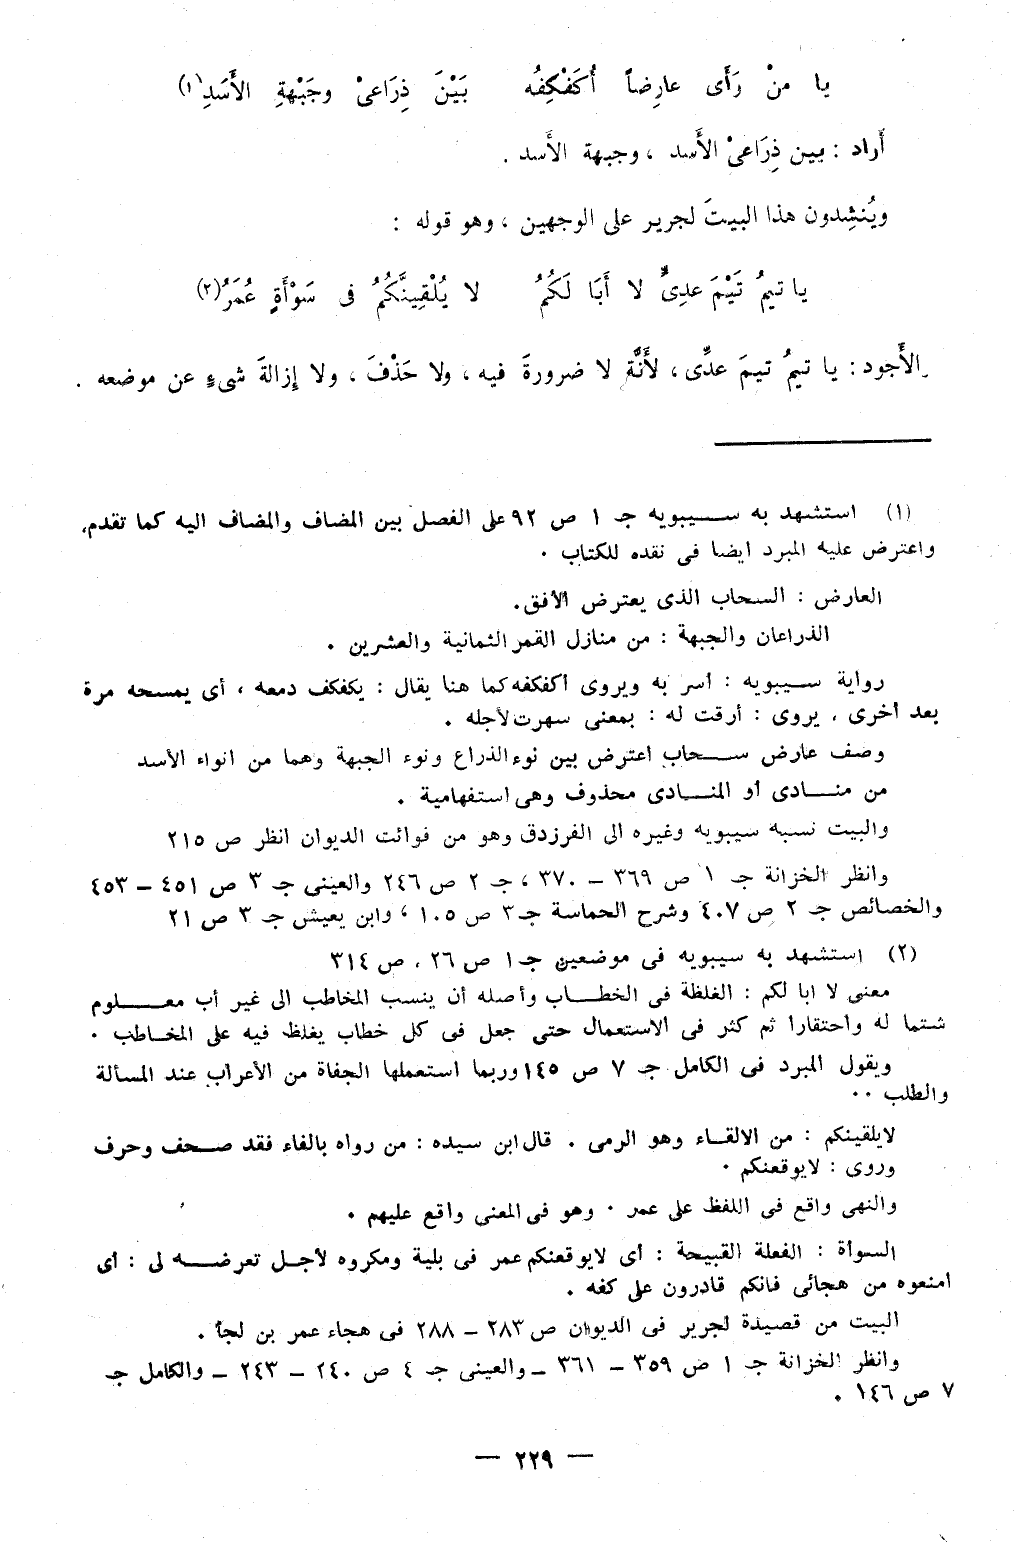 يا منْ رَأَى عارِضاً أُكَفْكِفُه بَيْنَ ذِرَاعىْ وجَبْهةِ الأَسَدِ(١)
أَراد : بين ذِرَاعىْ الأَسد ، وجبهة الأَسد .
ويُنشِدون هذا البيتَ لجرير على الوجهين ، وهو قوله :
يا تيمُ تَيْمَ عدِىٌّ لا أَبَا لَكُمُ لا يُلْقِيَنَّكُمُ فى سَوْأَةٍ عُمَرُ(٢)
والأَجود : يا تيمُ تيمَ عدًّى ، لأَنَّه لا ضرورةَ فيه ، ولا حَذْفَ ، ولا إزالةَ شىءٍ عن موضعه .
(١) استشهد به سيبويه جـ ١ ص ٩٢ على الفصل بين المضاف والمضاف اليه كما تقدم،
واعترض عليه المبرد ايضا فى نقده للكتاب .
العارض : السحاب الذى يعترض الأفق.
الذراعان والجبهة : من منازل القمر الثمانية والعشرين .
رواية سيبويه : أسر به ويروى أكفكفه كما هنا يقال : يكفكف دمعه ، أى يمسحه مرة
بعد أخرى ، يروى : أرقت له : بمعنى سهرت لأجله .
وصف عارض سحاب اعترض بين نوء الذراع ونوء الجبهة وهما من انواء الأسد
من منادى أو المنادى محذوف وهى استفهامية .
والبيت نسبه سيبويه وغيره الى الفرزدق وهو من فوائت الديوان انظر ص ٢١٥
وانظر الخزانة جـ ١ ص ٣٦٩ – ٣٧٠ ، جـ ٢ ص ٢٤٦ والعينى جـ ٣ ص ٤٥١ – ٤٥٣
والخصائص جـ ٢ ص ٤٠٧ وشرح الحماسة جـ ٣ ص ١٠٥ ، وابن يعيش جـ ٣ ص ٢١
(٢) استشهد به سيبويه فى موضعين جـ ١ ص ٢٦ ، ص ٣١٤
معنى لا ابا لكم : الغلظة فى الخطاب وأصله أن ينسب المخاطب الى غير أب معلوم
شتما له واحتقارا ثم كثر فى الاستعمال حتى جعل فى كل خطاب يغلظ فيه على المخاطب .
ويقول المبرد فى الكامل جـ ٧ ص ١٤٥ وربما استعملها الجفاة من الأعراب عند المسألة
والطلب ..
لايلقينكم : من الالقاء وهو الرمى . قال ابن سيده : من رواه بالفاء فقد صحف وحرف
وروى : لايوقعنكم .
والنهى واقع فى اللفظ على عمر . وهو فى المعنى واقع عليهم .
السوأة : الفعلة القبيحة : أى لايوقعنكم عمر فى بلية ومكروه لأجل تعرضه لى : أى
امنعوه من هجائى فانكم قادرون على كفه .
البيت من قصيدة لجرير فى الديوان ص ٢٨٣ – ٢٨٨ فى هجاء عمر بن لجأ .
وانظر الخزانة جـ ١ ص ٣٥٩ – ٣٦١ – والعينى جـ ٤ ص ٢٤٠ – ٢٤٣ – والكامل جـ
٧ ص ١٤٦ .
— ٢٢٩ —